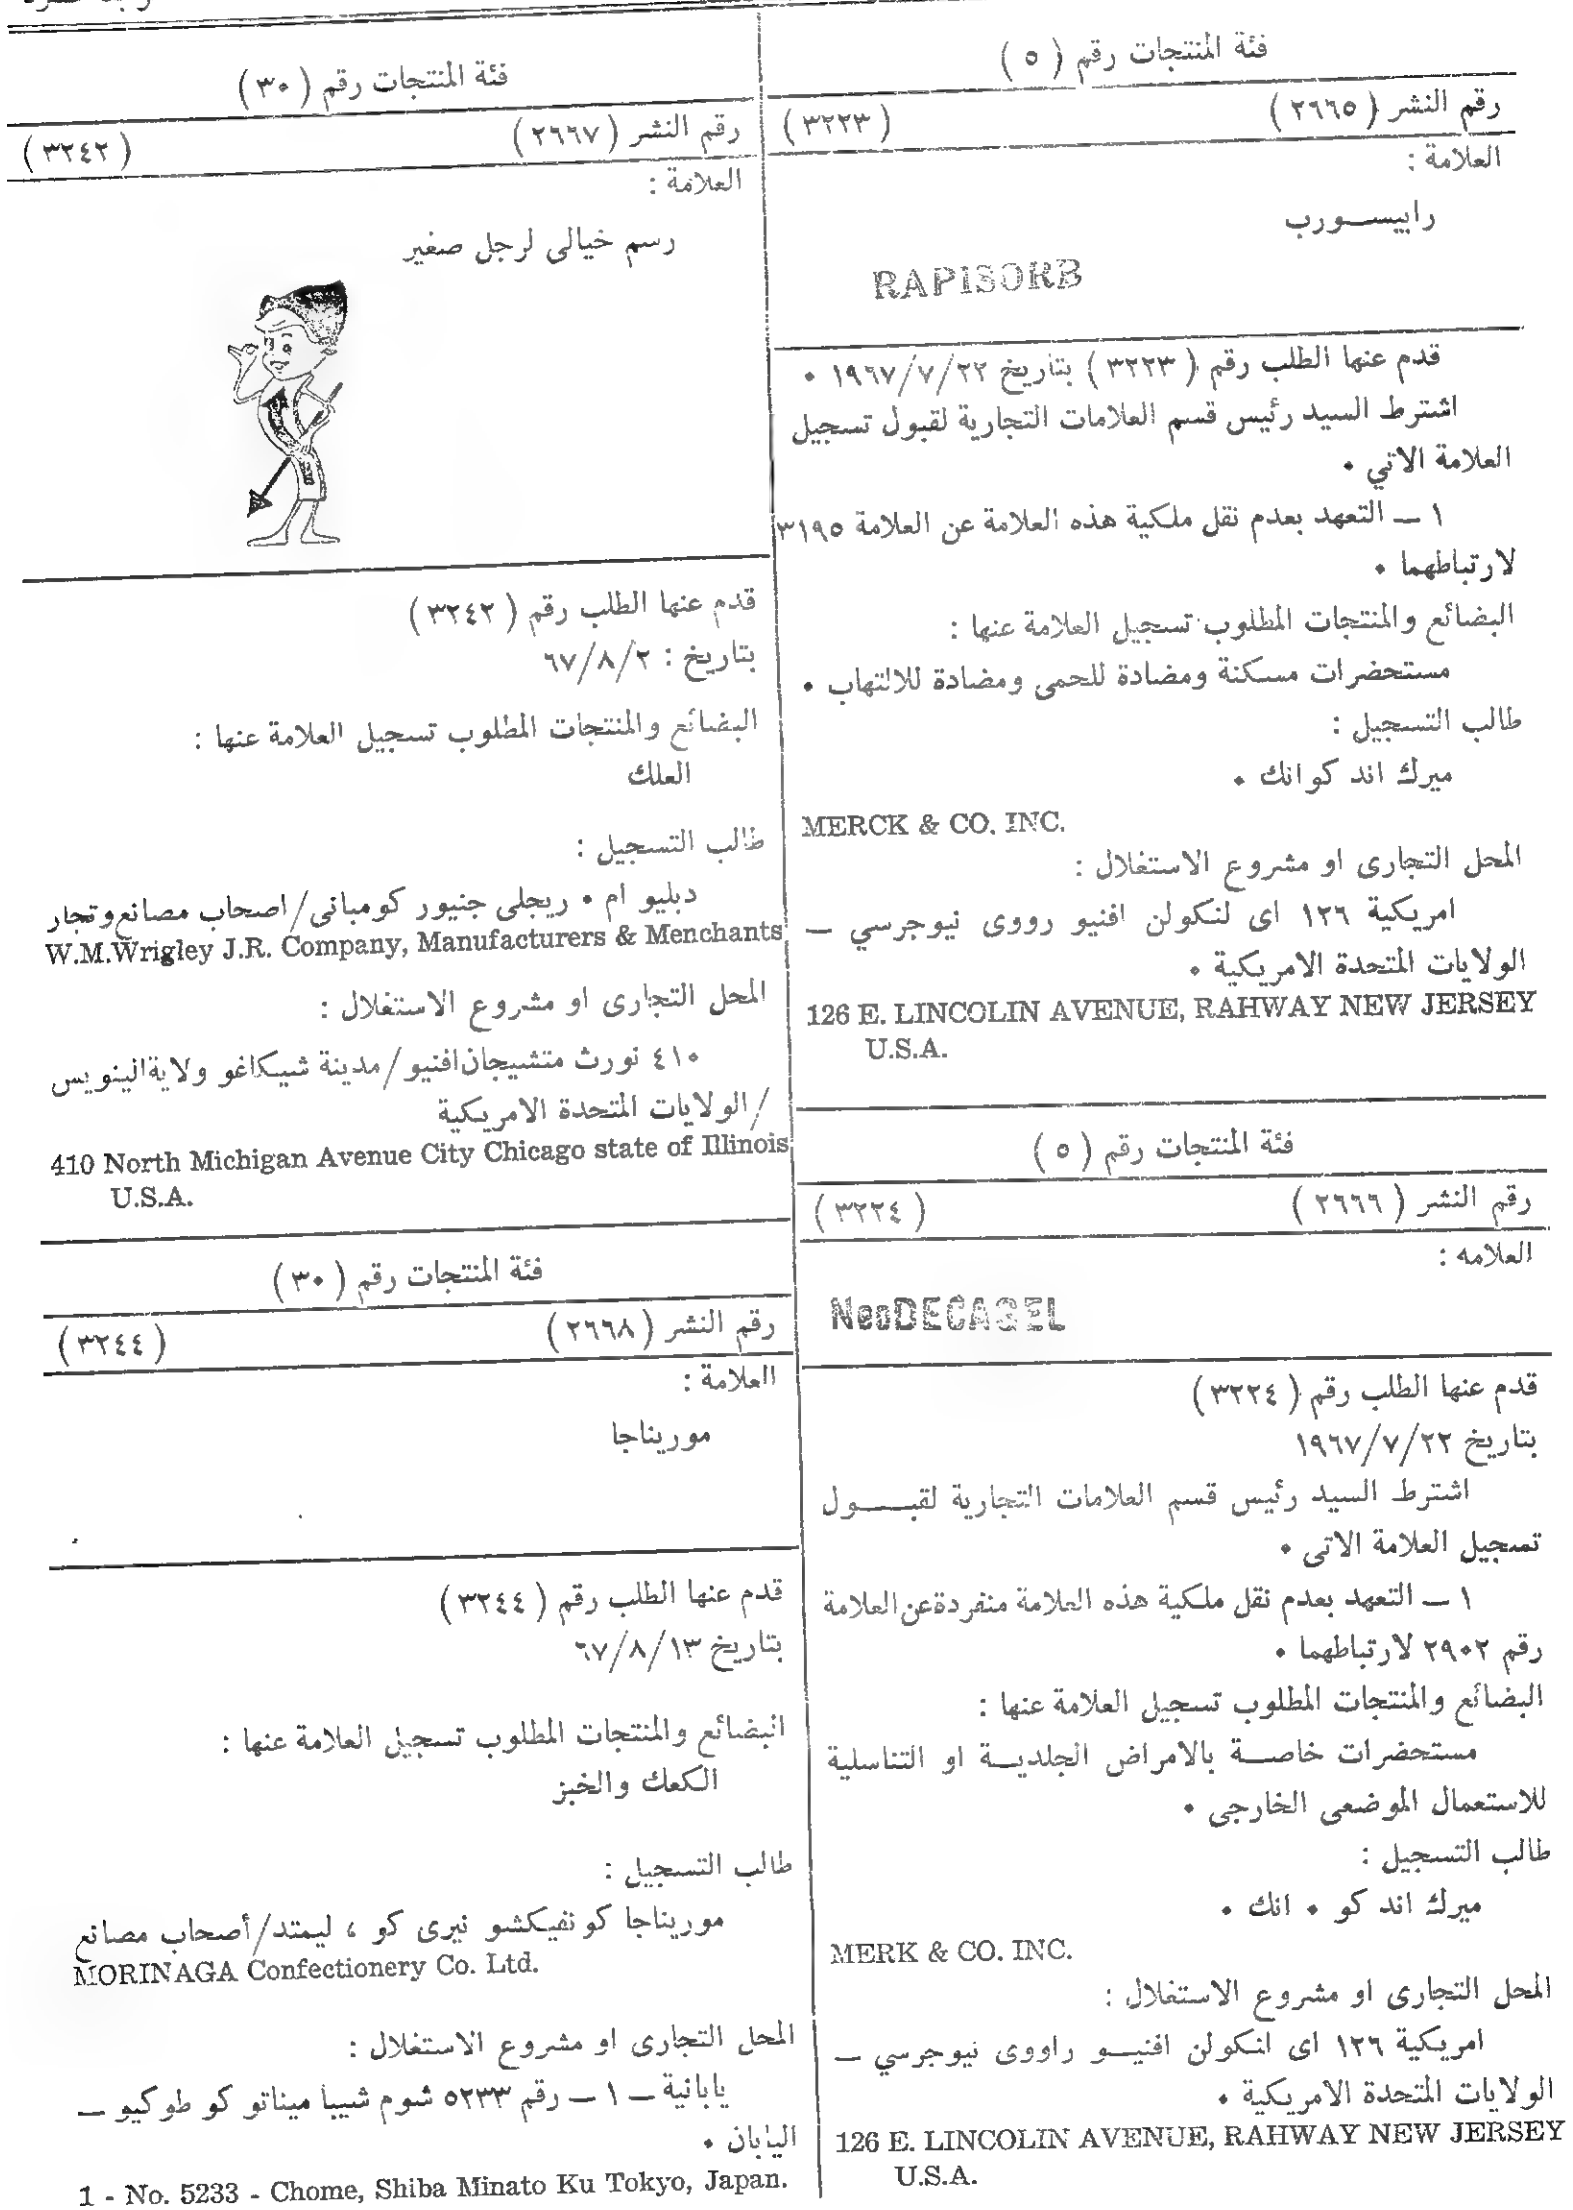 فئة المنتجات رقم ( ٥ )
رقم النشر ( ٢٦٦٥ ) ( ٣٢٢٣ )
العلامة :
رابيســورب
RAPISORB
قدم عنها الطلب رقم ( ٣٢٢٣ ) بتاريخ ١٩٦٧/٧/٢٢ ٠
اشترط السيد رئيس قسم العلامات التجارية لقبول تسجيل
العلامة الاتي ٠
١ ــ التعهد بعدم نقل ملكية هذه العلامة عن العلامة ٣١٩٥
لارتباطهما ٠
البضائع والمنتجات المطلوب تسجيل العلامة عنها :
مستحضرات مسكنة ومضادة للحمى ومضادة للالتهاب ٠
طالب التسجيل :
ميرك اند كوانك ٠
MERCK & CO. INC.
المحل التجارى او مشروع الاستغلال :
امريكية ١٢٦ اى لنكولن افنيو رووى نيوجرسي ــ
الولايات المتحدة الامريكية ٠
126 E. LINCOLIN AVENUE, RAHWAY NEW JERSEY
U.S.A.
فئة المنتجات رقم ( ٥ )
رقم النشر ( ٢٦٦٦ ) ( ٣٢٢٤ )
العلامه :
NeoDECAGEL
قدم عنها الطلب رقم ( ٣٢٢٤ )
بتاريخ ١٩٦٧/٧/٢٢
اشترط السيد رئيس قسم العلامات التجارية لقبـــول
تسجيل العلامة الاتى ٠
١ ــ التعهد بعدم نقل ملكية هذه العلامة منفردة عن العلامة
رقم ٢٩٠٢ لارتباطهما ٠
البضائع والمنتجات المطلوب تسجيل العلامة عنها :
مستحضرات خاصــة بالامراض الجلديــة او التناسلية
للاستعمال الموضعى الخارجى ٠
طالب التسجيل :
ميرك اند كو ٠ انك ٠
MERK & CO. INC.
المحل التجارى او مشروع الاستغلال :
امريكية ١٢٦ اى لنكولن افنيــو راووى نيوجرسي ــ
الولايات المتحدة الامريكية ٠
126 E. LINCOLIN AVENUE, RAHWAY NEW JERSEY
U.S.A.
فئة المنتجات رقم ( ٣٠ )
رقم النشر ( ٢٦٦٧ ) ( ٣٢٤٢ )
العلامة :
رسم خيالى لرجل صغير
قدم عنها الطلب رقم ( ٣٢٤٢ )
بتاريخ : ٦٧/٨/٢
البضائع والمنتجات المطلوب تسجيل العلامة عنها :
العلك
طالب التسجيل :
دبليو ام ٠ ريجلى جنيور كومبانى/اصحاب مصانع وتجار
W.M.Wrigley J.R. Company, Manufacturers & Menchants
المحل التجارى او مشروع الاستغلال :
٤١٠ نورث متشيجان افنيو/مدينة شيكاغو ولاية الينويس
/الولايات المتحدة الامريكية
410 North Michigan Avenue City Chicago state of Illinois
U.S.A.
فئة المنتجات رقم ( ٣٠ )
رقم النشر ( ٢٦٦٨ ) ( ٣٢٤٤ )
العلامة :
موريناجا
قدم عنها الطلب رقم ( ٣٢٤٤ )
بتاريخ ٦٧/٨/١٣
البضائع والمنتجات المطلوب تسجيل العلامة عنها :
الكعك والخبز
طالب التسجيل :
موريناجا كونفيكشو نيرى كو ، ليمتد/أصحاب مصانع
MORINAGA Confectionery Co. Ltd.
المحل التجارى او مشروع الاستغلال :
يابانية ــ ١ ــ رقم ٥٢٣٣ شوم شيبا ميناتو كو طوكيو ــ
اليابان ٠
1 - No. 5233 - Chome, Shiba Minato Ku Tokyo, Japan.